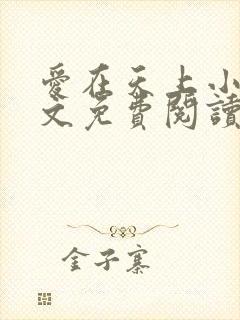 愛在天上小
文免費閱讀
金子寨